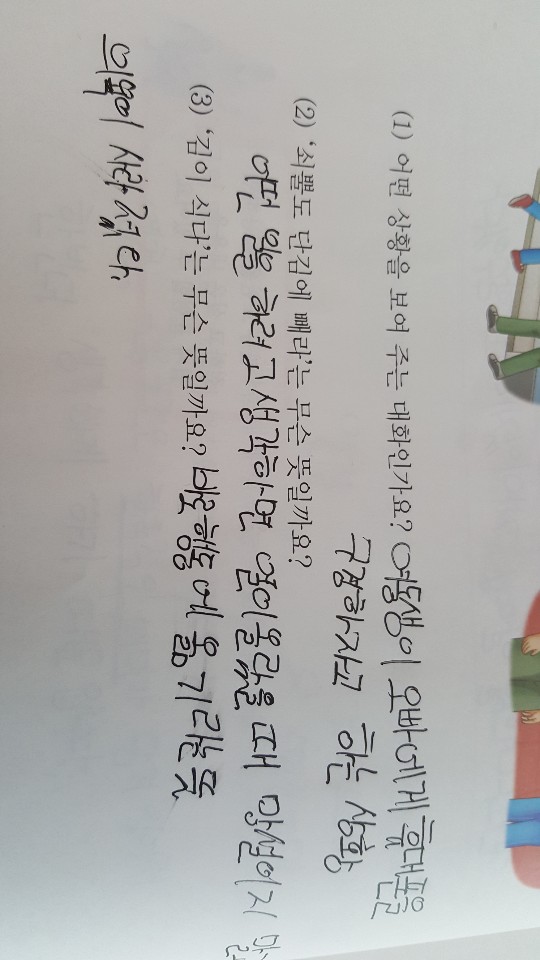 (1) 어떤 상황을 보여 주는 대화인가요? 여동생이 오빠에게 휴대폰을
구경하자고 하는 상황
(2) '쇠뿔도 단김에 빼라'는 무슨 뜻일까요?
어떤 일을 하려고 생각하면 열이 올랐을 때 망설이지
(3) '김이 식다'는 무슨 뜻일까요? 바로 행동에 옮기라는 뜻
의욕이 사라졌다.